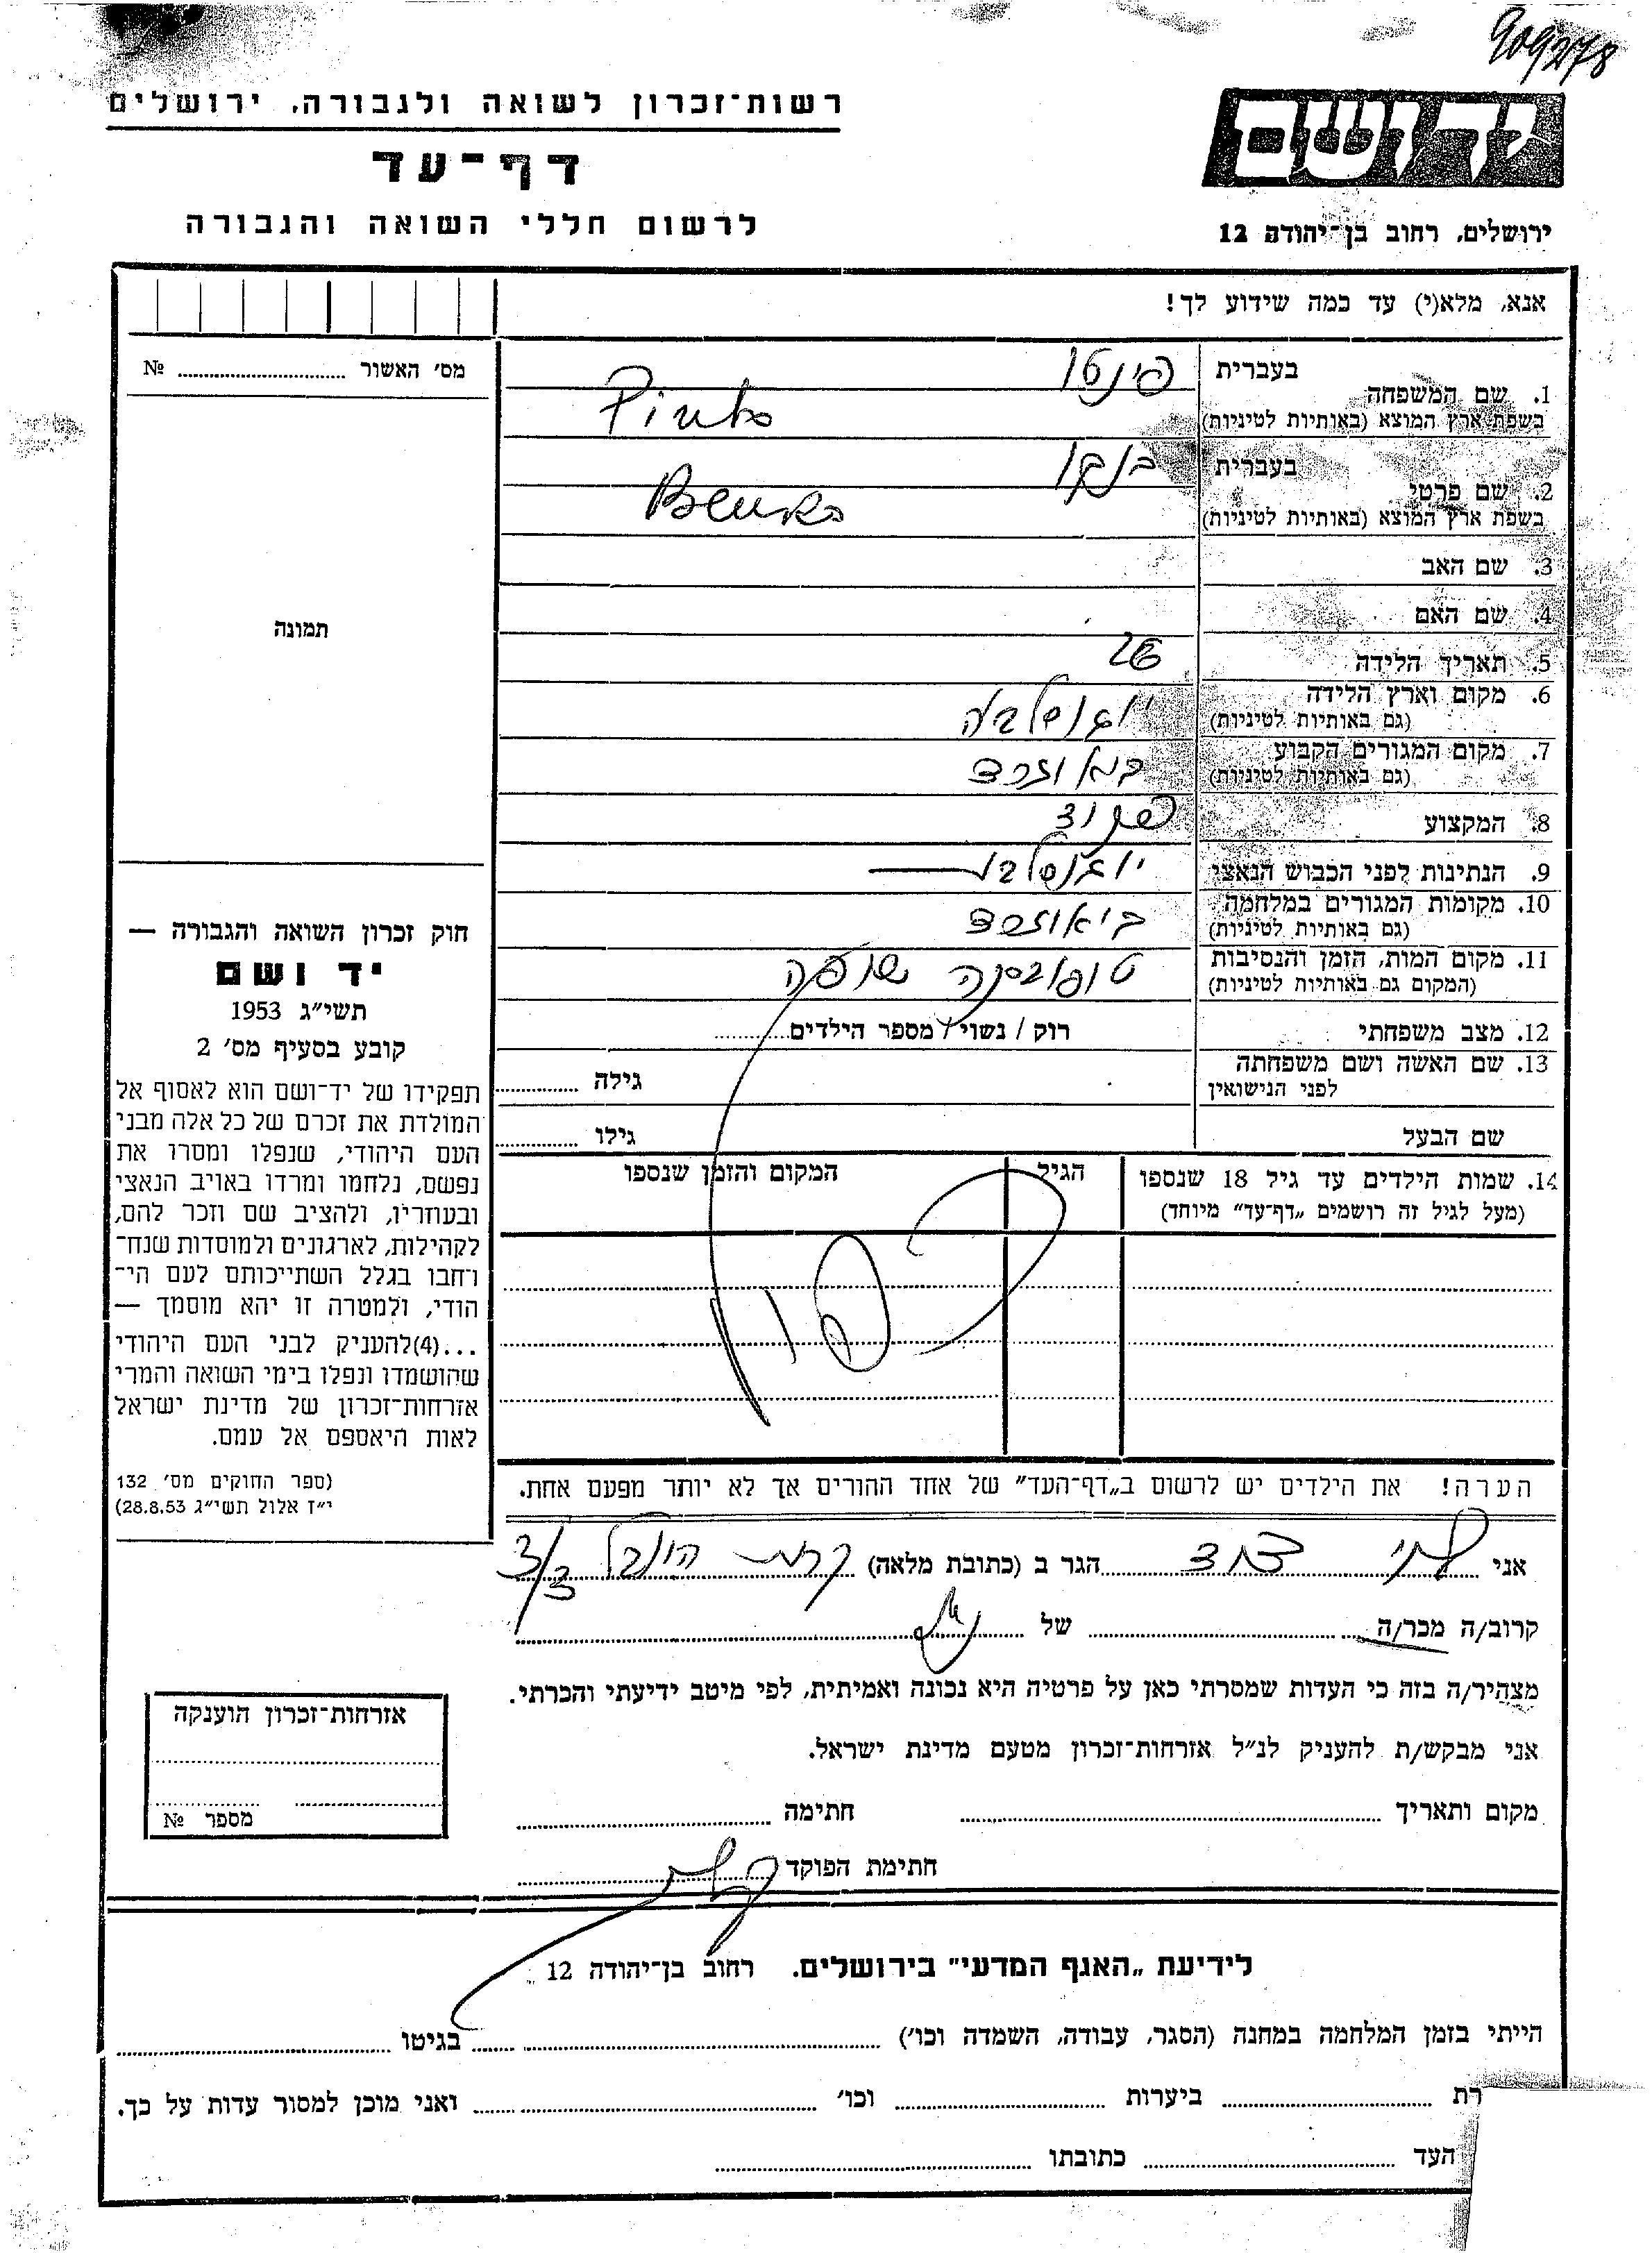 909278
רשות־זכרון לשואה ולגבורה, ירושלים
דף־עד
לרשום חללי השואה והגבורה
ידושם
ירושלים, רחוב בן־יהודה 12
אנא, מלא(י) עד כמה שידוע לך!
מס׳ האשור № 
1. שם המשפחה בעברית פינטו
בשפת ארץ המוצא (באותיות לטיניות) Pinto
2. שם פרטי בעברית בנקו
בשפת ארץ המוצא (באותיות לטיניות) Benko
3. שם האב
4. שם האם
5. תאריך הלידה
6. מקום וארץ הלידה
(גם באותיות לטיניות) יוגוסלביה
7. מקום המגורים הקבוע
(גם באותיות לטיניות)
8. המקצוע פקיד
9. הנתינות לפני הכבוש הנאצי
10. מקומות המגורים במלחמה
(גם באותיות לטיניות)
11. מקום המות, הזמן והנסיבות
(המקום גם באותיות לטיניות) טופובסקה שופה
12. מצב משפחתי רוק / נשוי / מספר הילדים
13. שם האשה ושם משפחתה
לפני הנישואין גילה
שם הבעל גילו
14. שמות הילדים עד גיל 18 שנספו הגיל המקום והזמן שנספו
(מעל לגיל זה רושמים „דף־עד״ מיוחד)
הערה! את הילדים יש לרשום ב„דף־העד״ של אחד ההורים אך לא יותר מפעם אחת.
תמונה
חוק זכרון השואה והגבורה —
יד ושם
תשי״ג 1953
קובע בסעיף מס׳ 2
תפקידו של יד־ושם הוא לאסוף אל
המולדת את זכרם של כל אלה מבני
העם היהודי, שנפלו ומסרו את
נפשם, נלחמו ומרדו באויב הנאצי
ובעוזריו, ולהציב שם וזכר להם,
לקהילות, לארגונים ולמוסדות שנח־
רחבו בגלל השתייכותם לעם הי־
הודי, ולמטרה זו יהא מוסמך —
...(4)להעניק לבני העם היהודי
שהושמדו ונפלו בימי השואה והמרי
אזרחות־זכרון של מדינת ישראל
לאות היאספם אל עמם.
(ספר החוקים מס׳ 132
י״ז אלול תשי״ג 28.8.53)
אני הגר ב (כתובת מלאה) קרית היובל
קרוב/ה מכר/ה של
מצהיר/ה בזה כי העדות שמסרתי כאן על פרטיה היא נכונה ואמיתית, לפי מיטב ידיעתי והכרתי.
אני מבקש/ת להעניק לנ״ל אזרחות־זכרון מטעם מדינת ישראל.
מקום ותאריך חתימה
חתימת הפוקד
אזרחות־זכרון הוענקה
מספר №
לידיעת „האגף המדעי״ בירושלים. רחוב בן־יהודה 12
הייתי בזמן המלחמה במחנה (הסגר, עבודה, השמדה וכו׳) בגיטו
רת ביערות וכו׳ ואני מוכן למסור עדות על כך.
העד כתובתו